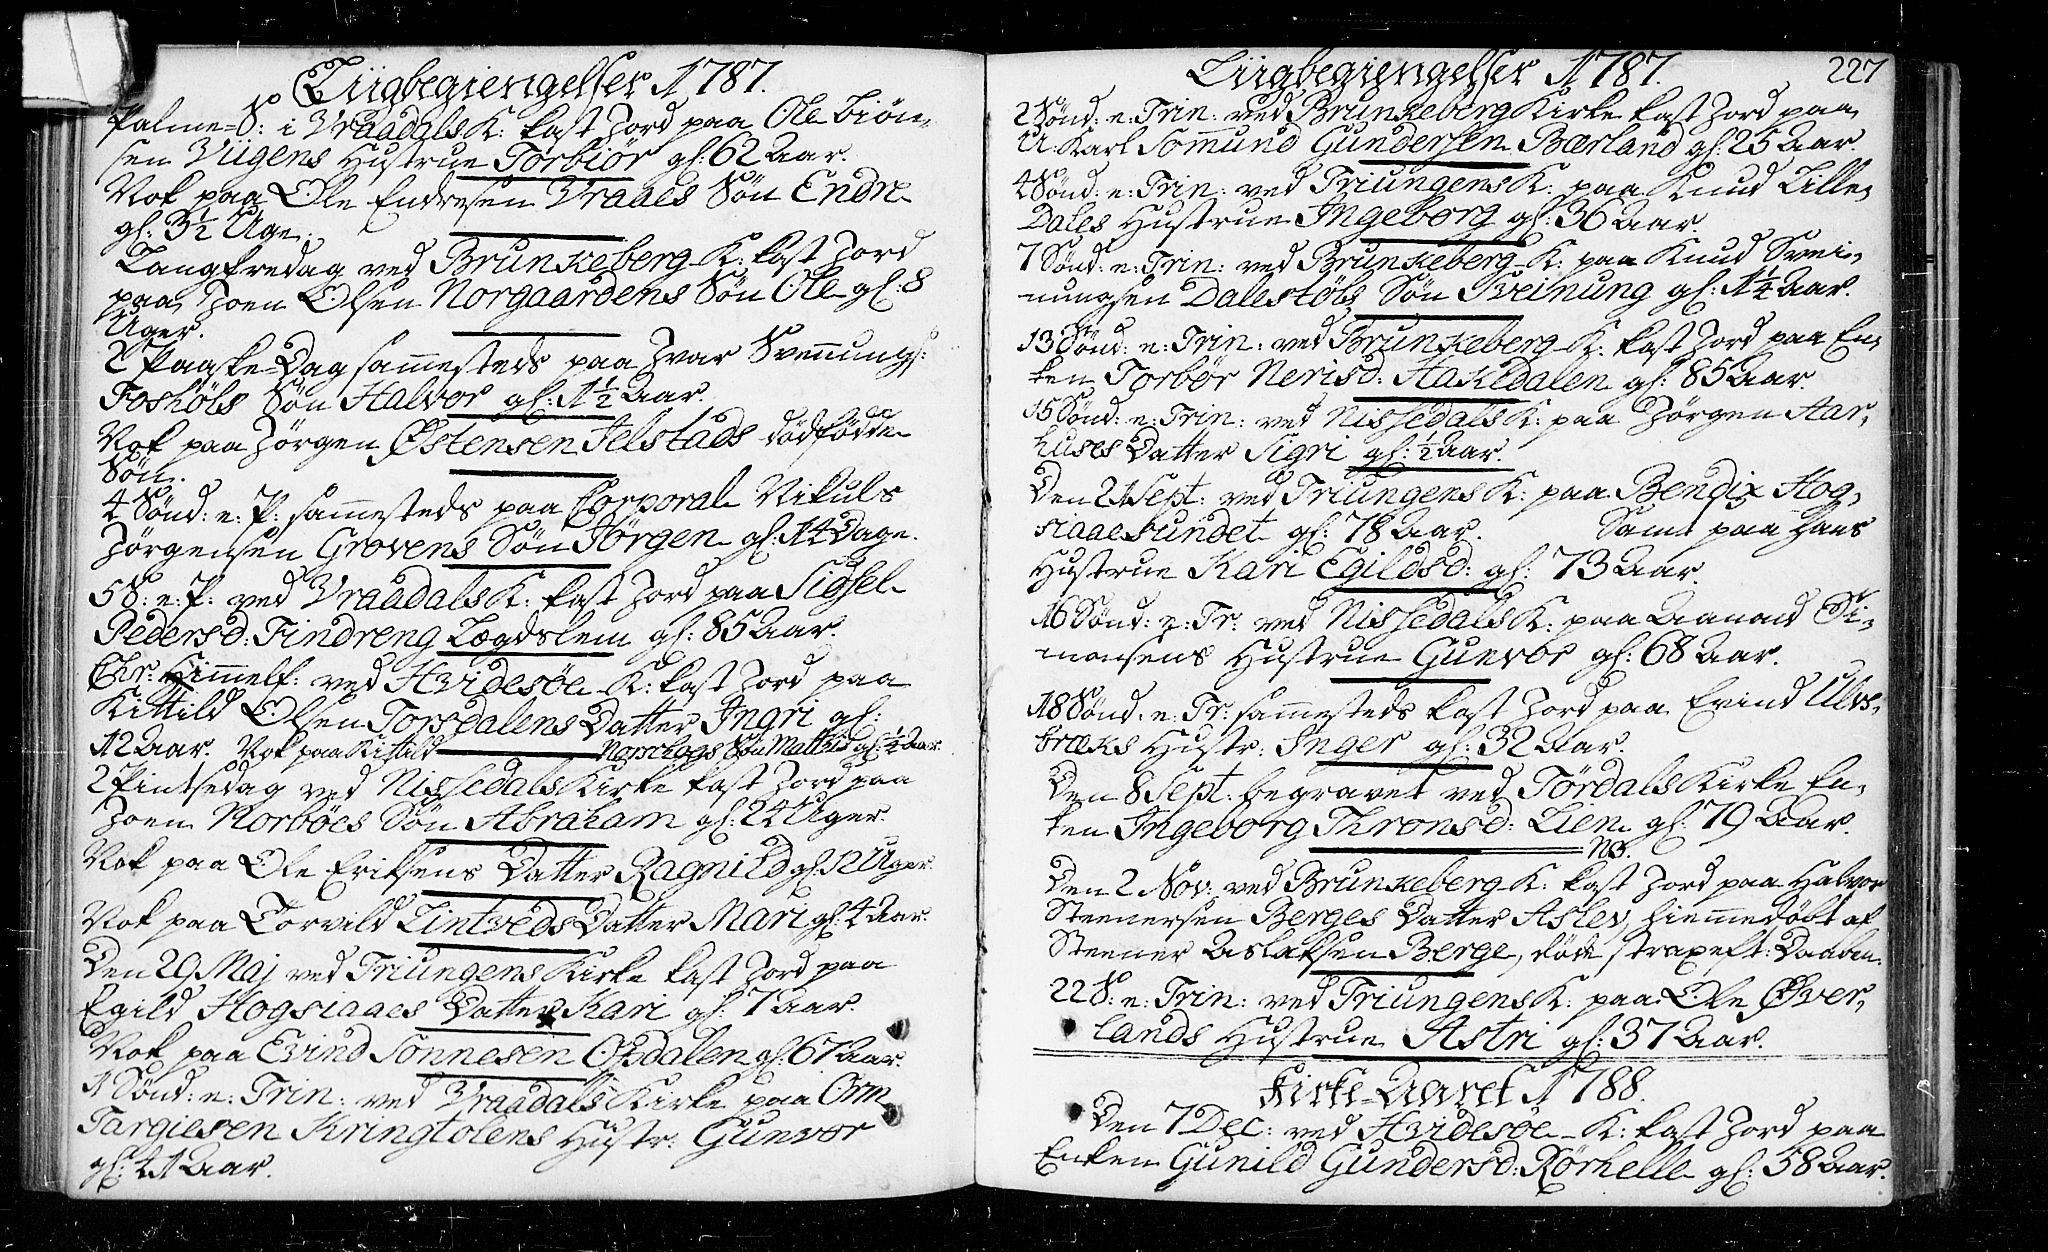 Liigbegiengelser 1787.
Palme-S: i Vraadals K: kast Jord paa Ole Biön-
sen Viigens Hustrue Torbiör gl: 62 Aar.
Nok paa Ole Endresen Vraaes Søn Endre
gl: 3½ Uge.
Langfredag ved Brunkeberg K: kast Jord
paa Joen Olsen Norgaardens Søn Ole gl: 8
Uger.
2 Paaske-Dag sam̄esteds paa Ivar Svenungs:
Foshöls Søn Halvor gl: 1½ Aar.
Nok paa Jørgen Østensen Jelstads dödfödde
Søn.
4 Sönd: e: P: sam̄esteds paa Corporal Nikuls
Jørgensen Grovens Søn Jörgen gl: 14 Dage.
5 S: e: P: ved Vraadals K: kast Jord paa Sigsel
Pedersd: Findreng Lægdslem gl: 85 Aar.
Chr: Him̄elf: ved Hvidesöe K: kast Jord paa
Kittild Olsen Torsdalens Datter Ingri gl:
12 Aar. Nok paa Kittild Norskogs Søn Mathis gl: ½ Aar.
2 Pintsedag ved Nissedals Kirke kast Jord paa
Joen Norböes Søn Abraham gl: 24 Uger.
Nok paa Ole Eriksens Datter Ragnild gl: 12 Uger.
Nok paa Torvild Lintveds Datter Mari gl: 4 Aar.
Den 29 Maj ved Triungens Kirke kast Jord paa
Egild Hogsiaaes Datter Kari gl: 7 Aar.
Nok paa Evind Sonnesen Opdalen gl: 67 Aar.
1 Sönd: e: Trin: ved Vraadals Kirke paa Orm
Targiesen Kringtolens Hustr: Gunvor
gl: 41 Aar.
Liigbegiengelser 1787. 227
2 Sönd: e: Trin: ved Brunkeberg Kirke kast Jord paa
U: Karl Somund Gundersen Bærland gl: 25 Aar.
4 Sönd: e: Trin: ved Triungens K: paa Knud Lille-
Dales Hustrue Ingeborg gl: 36 Aar.
7 Sönd: e: Trin: ved Brunkeberg K: paa Knud Svei-
nungsen Dalestöls Søn Sveinung gl: 1¼ Aar.
13 Sönd: e: Trin: ved Brunkeberg K: kast Jord paa En-
ken Torbör Nerisd: Aakedalen gl: 85 Aar.
15 Sönd: e: Trin: ved Nissedals K: paa Jörgen Aar-
huses Datter Sigri gl: ½ Aar.
Den 21 Sept: ved Triungens K: paa Bendix Hog-
siaaesundet gl: 78 Aar. Samt paa Hans
Hustrue Kari Egildsd: gl: 73 Aar.
16 Sönd: e: Tr: ved Nissedals K: paa Aanond Si-
monsens Hustrue Gunvor gl: 68 Aar.
18 Sönd: e: Tr: sam̄esteds kast Jord paa Evind Ulvs-
træks Hustr: Inger gl: 32 Aar.
Den 8 Sept: begravet ved Tördals Kirke En-
ken Ingeborg Thronsd: Lien gl: 79 Aar.
NB.
Den 2 Nov: ved Brunkeberg K: kast Jord paa Halvor
Steenersen Berges Datter Aslev, hiem̄edöbt af
Steener Aslaksen Berge, döde strax eft: Daaben.
22 S: e: Trin: ved Triungens K: paa Ole Över-
lands Hustrue Astri gl: 37 Aar.
Kirke-Aaret 1788.
Den 7 Dec: ved Hvidesöe K: kast Jord paa
Enken Gunild Gundersd: Rörhelle gl: 58 Aar.